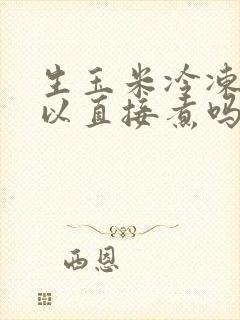 生玉米冷凍
以直接煮吗
西恩